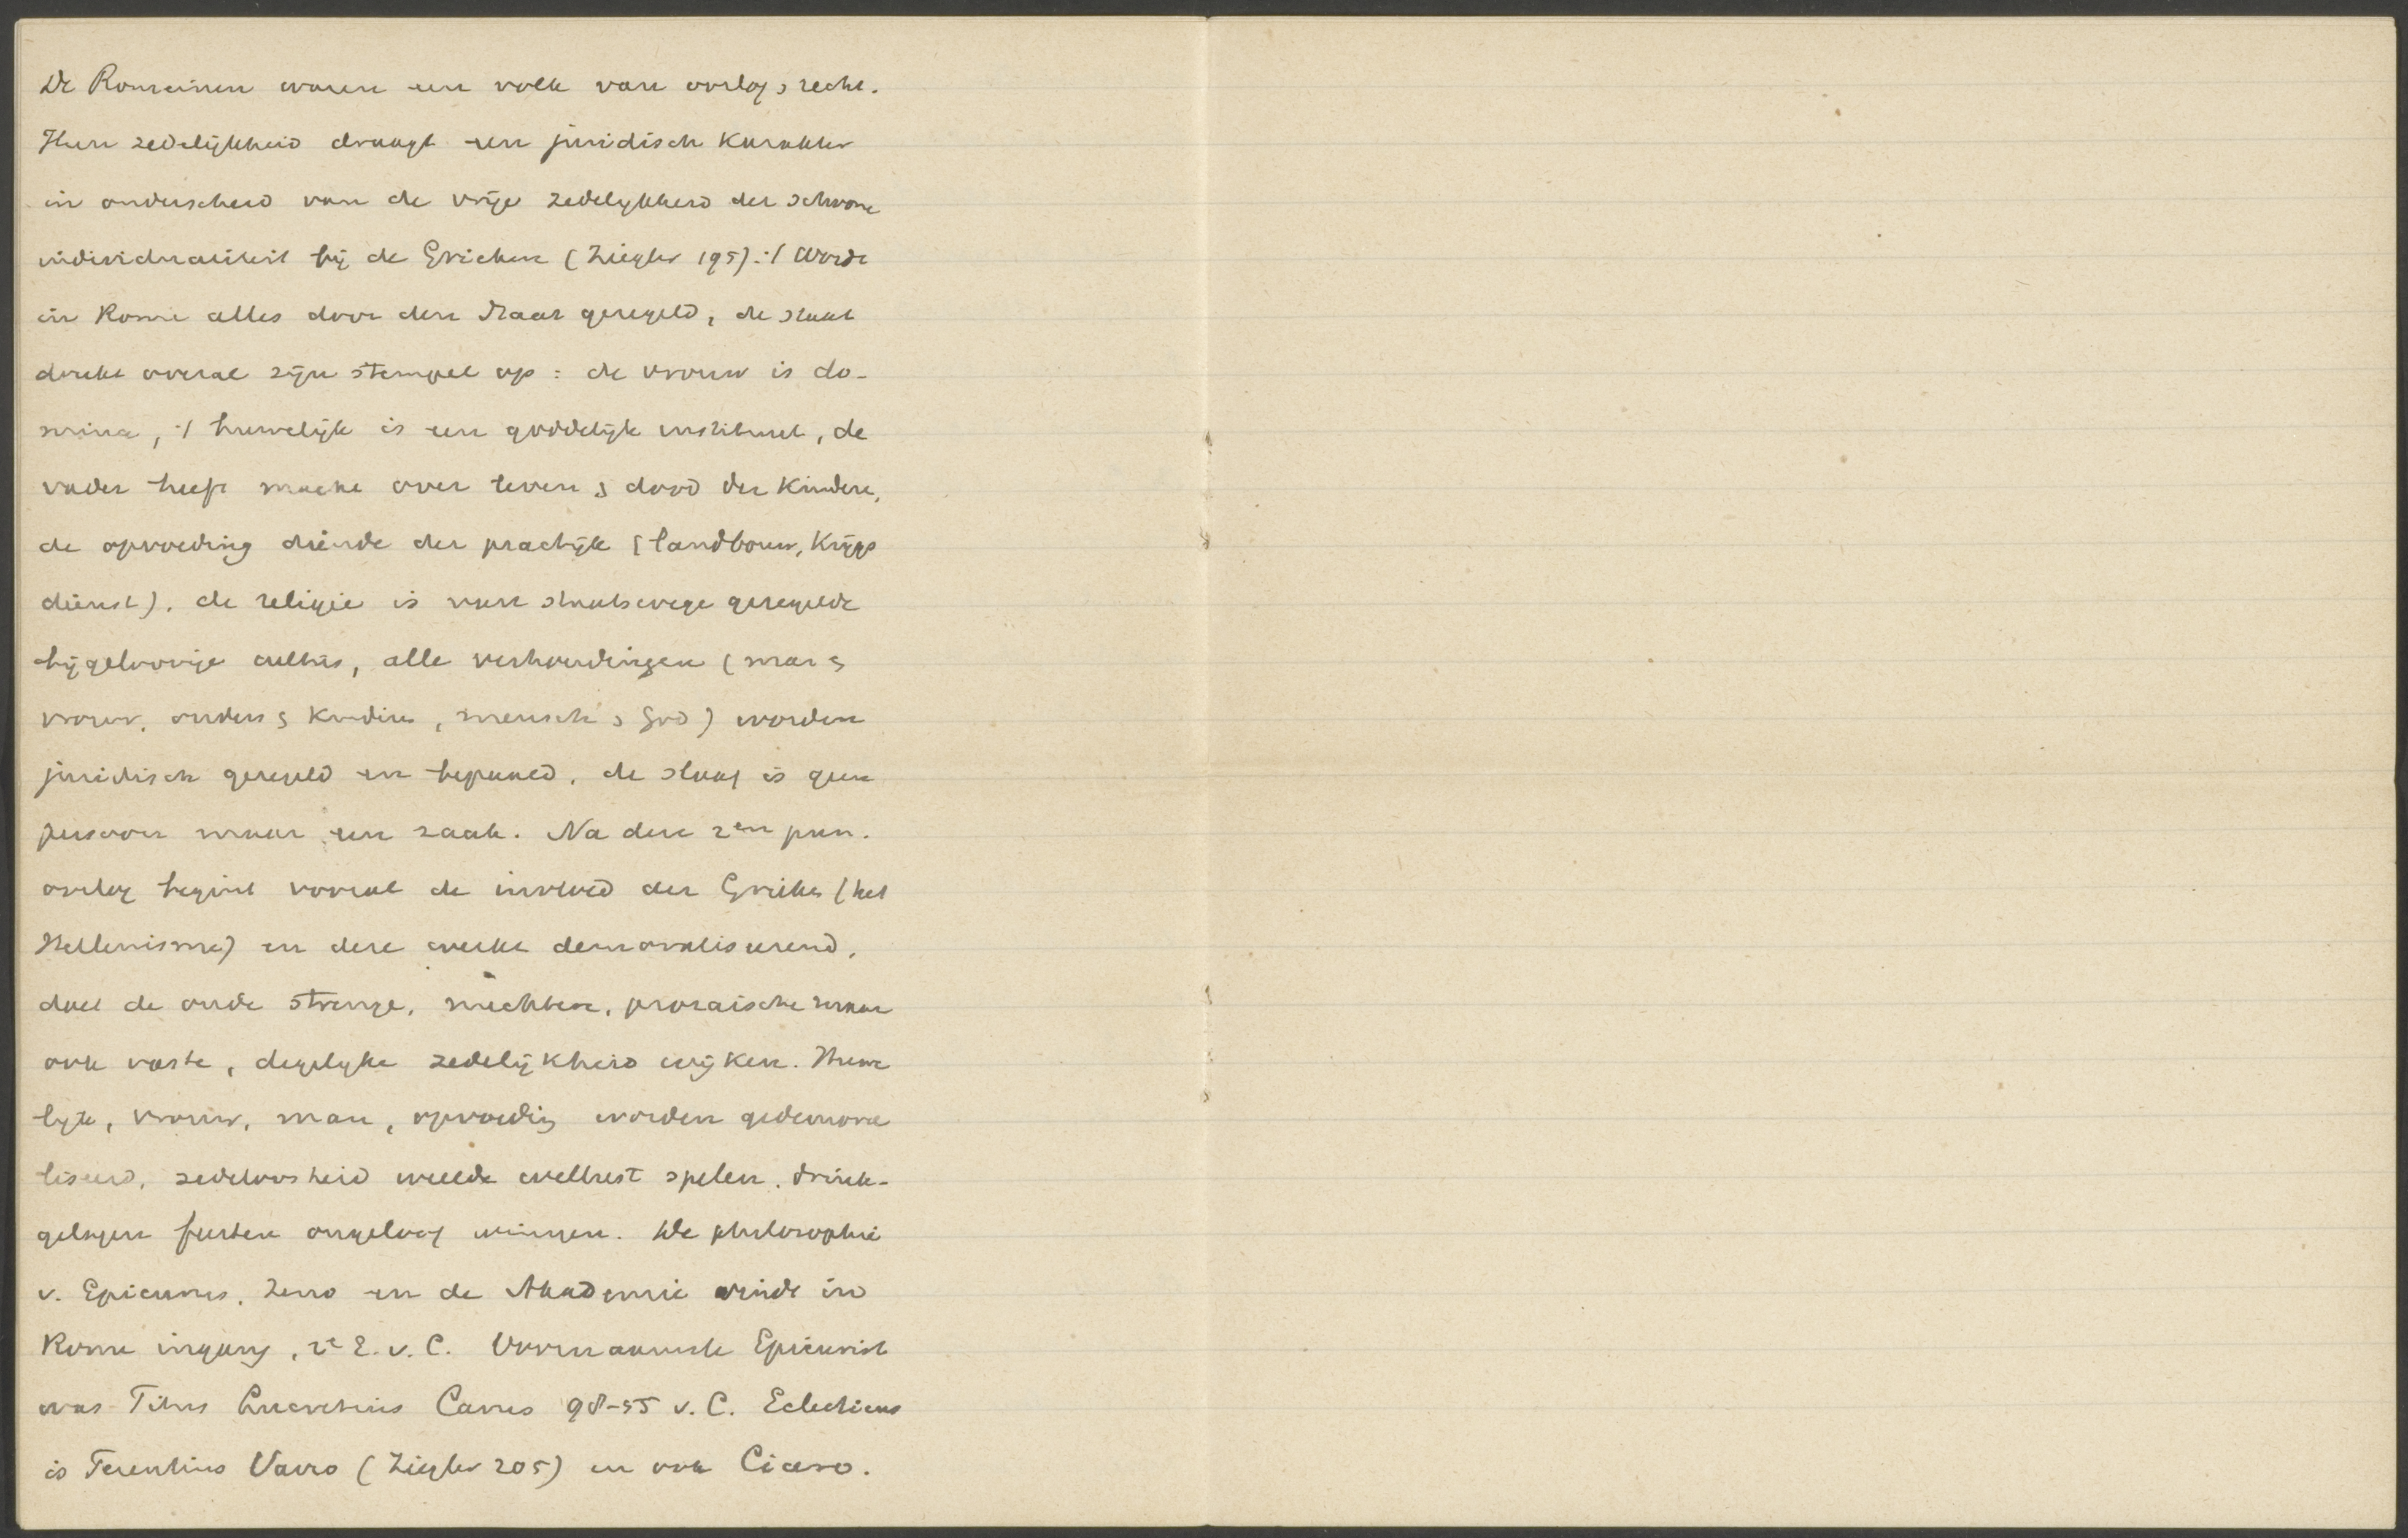 De Romeinen waren een volk van oorlog & recht.
Hun zedelijkheid draagt een juridisch karakter
in onderscheid van de vrije zedelijkheid der schoone
individualiteit bij de Grieken (Ziegler 195). 't Wordt
in Rome alles door den Staat geregeld, de staat
drukt overal zijn stempel op: de vrouw is do-
mina, 't huwelijk is een goddelijk instituut, de
vader heeft macht over leven & dood der kinderen,
de opvoeding diende der practijk (landbouw, krijgs
dienst), de religie is van staatswege geregelde
bijgeloovige cultus, alle verhoudingen (man &
vrouw, ouders & kinderen, mensch & God) worden
juridisch geregeld en bepaald, de slaaf is geen
persoon maar een zaak. Na den 2en pun.
oorlog begint vooral de invloed der Grieken (het
Hellenisme) en deze werkt demoraliseerend,
doet de oude strenge, nuchtere, prozaische maar
ook vaste, degelijke zedelijkheid wijken. Huwe
lijk, vrouw, man, opvoeding worden gedemora
liseerd, zedeloosheid weelde wellust spelen, drink-
gelagen feesten ongeloof winnen. De philosophie
v. Epicurus, Zeno en de Akademie vindt in
Rome ingang, 2e E. v. C. Voornaamste Epicurist
was Titus Lucretius Carus 98-55 v. C. Eclecticus
is Terentius Varro (Ziegler 205) en ook Cicero.